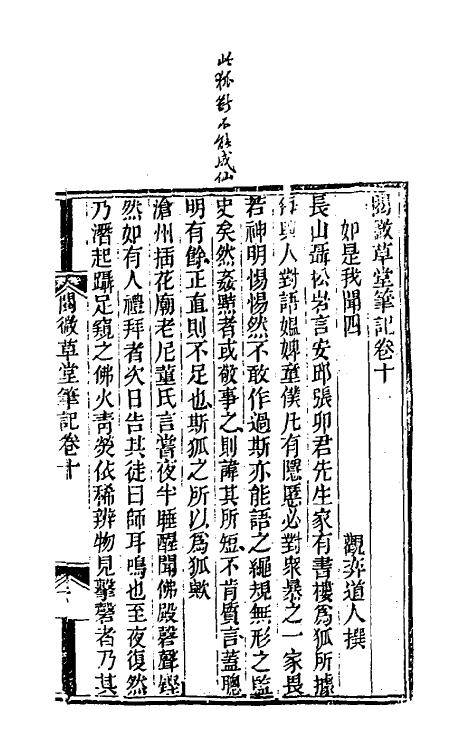 此狐斷不能成仙
閱微草堂筆記卷十
如是我聞四
觀弈道人撰
長山聶松岩言安邱張卯君先生家有書樓爲狐所據
每與人對語媼婢童僕凡有隱慝必對衆暴之一家畏
若神明惕惕然不敢作過斯亦能語之繩規無形之監
史矣然姦黠者或敬事之則諱其所短不肯質言蓋聰
明有餘正直則不足也斯狐之所以爲狐歟
滄州插花廟老尼董氏言嘗夜半睡醒聞佛殿磬聲鏗
然如有人禮拜者次日告其徒曰師耳鳴也至夜復然
乃潛起躡足窺之佛火青熒依稀辨物見擊磬者乃其
閱微草堂筆記卷十
一